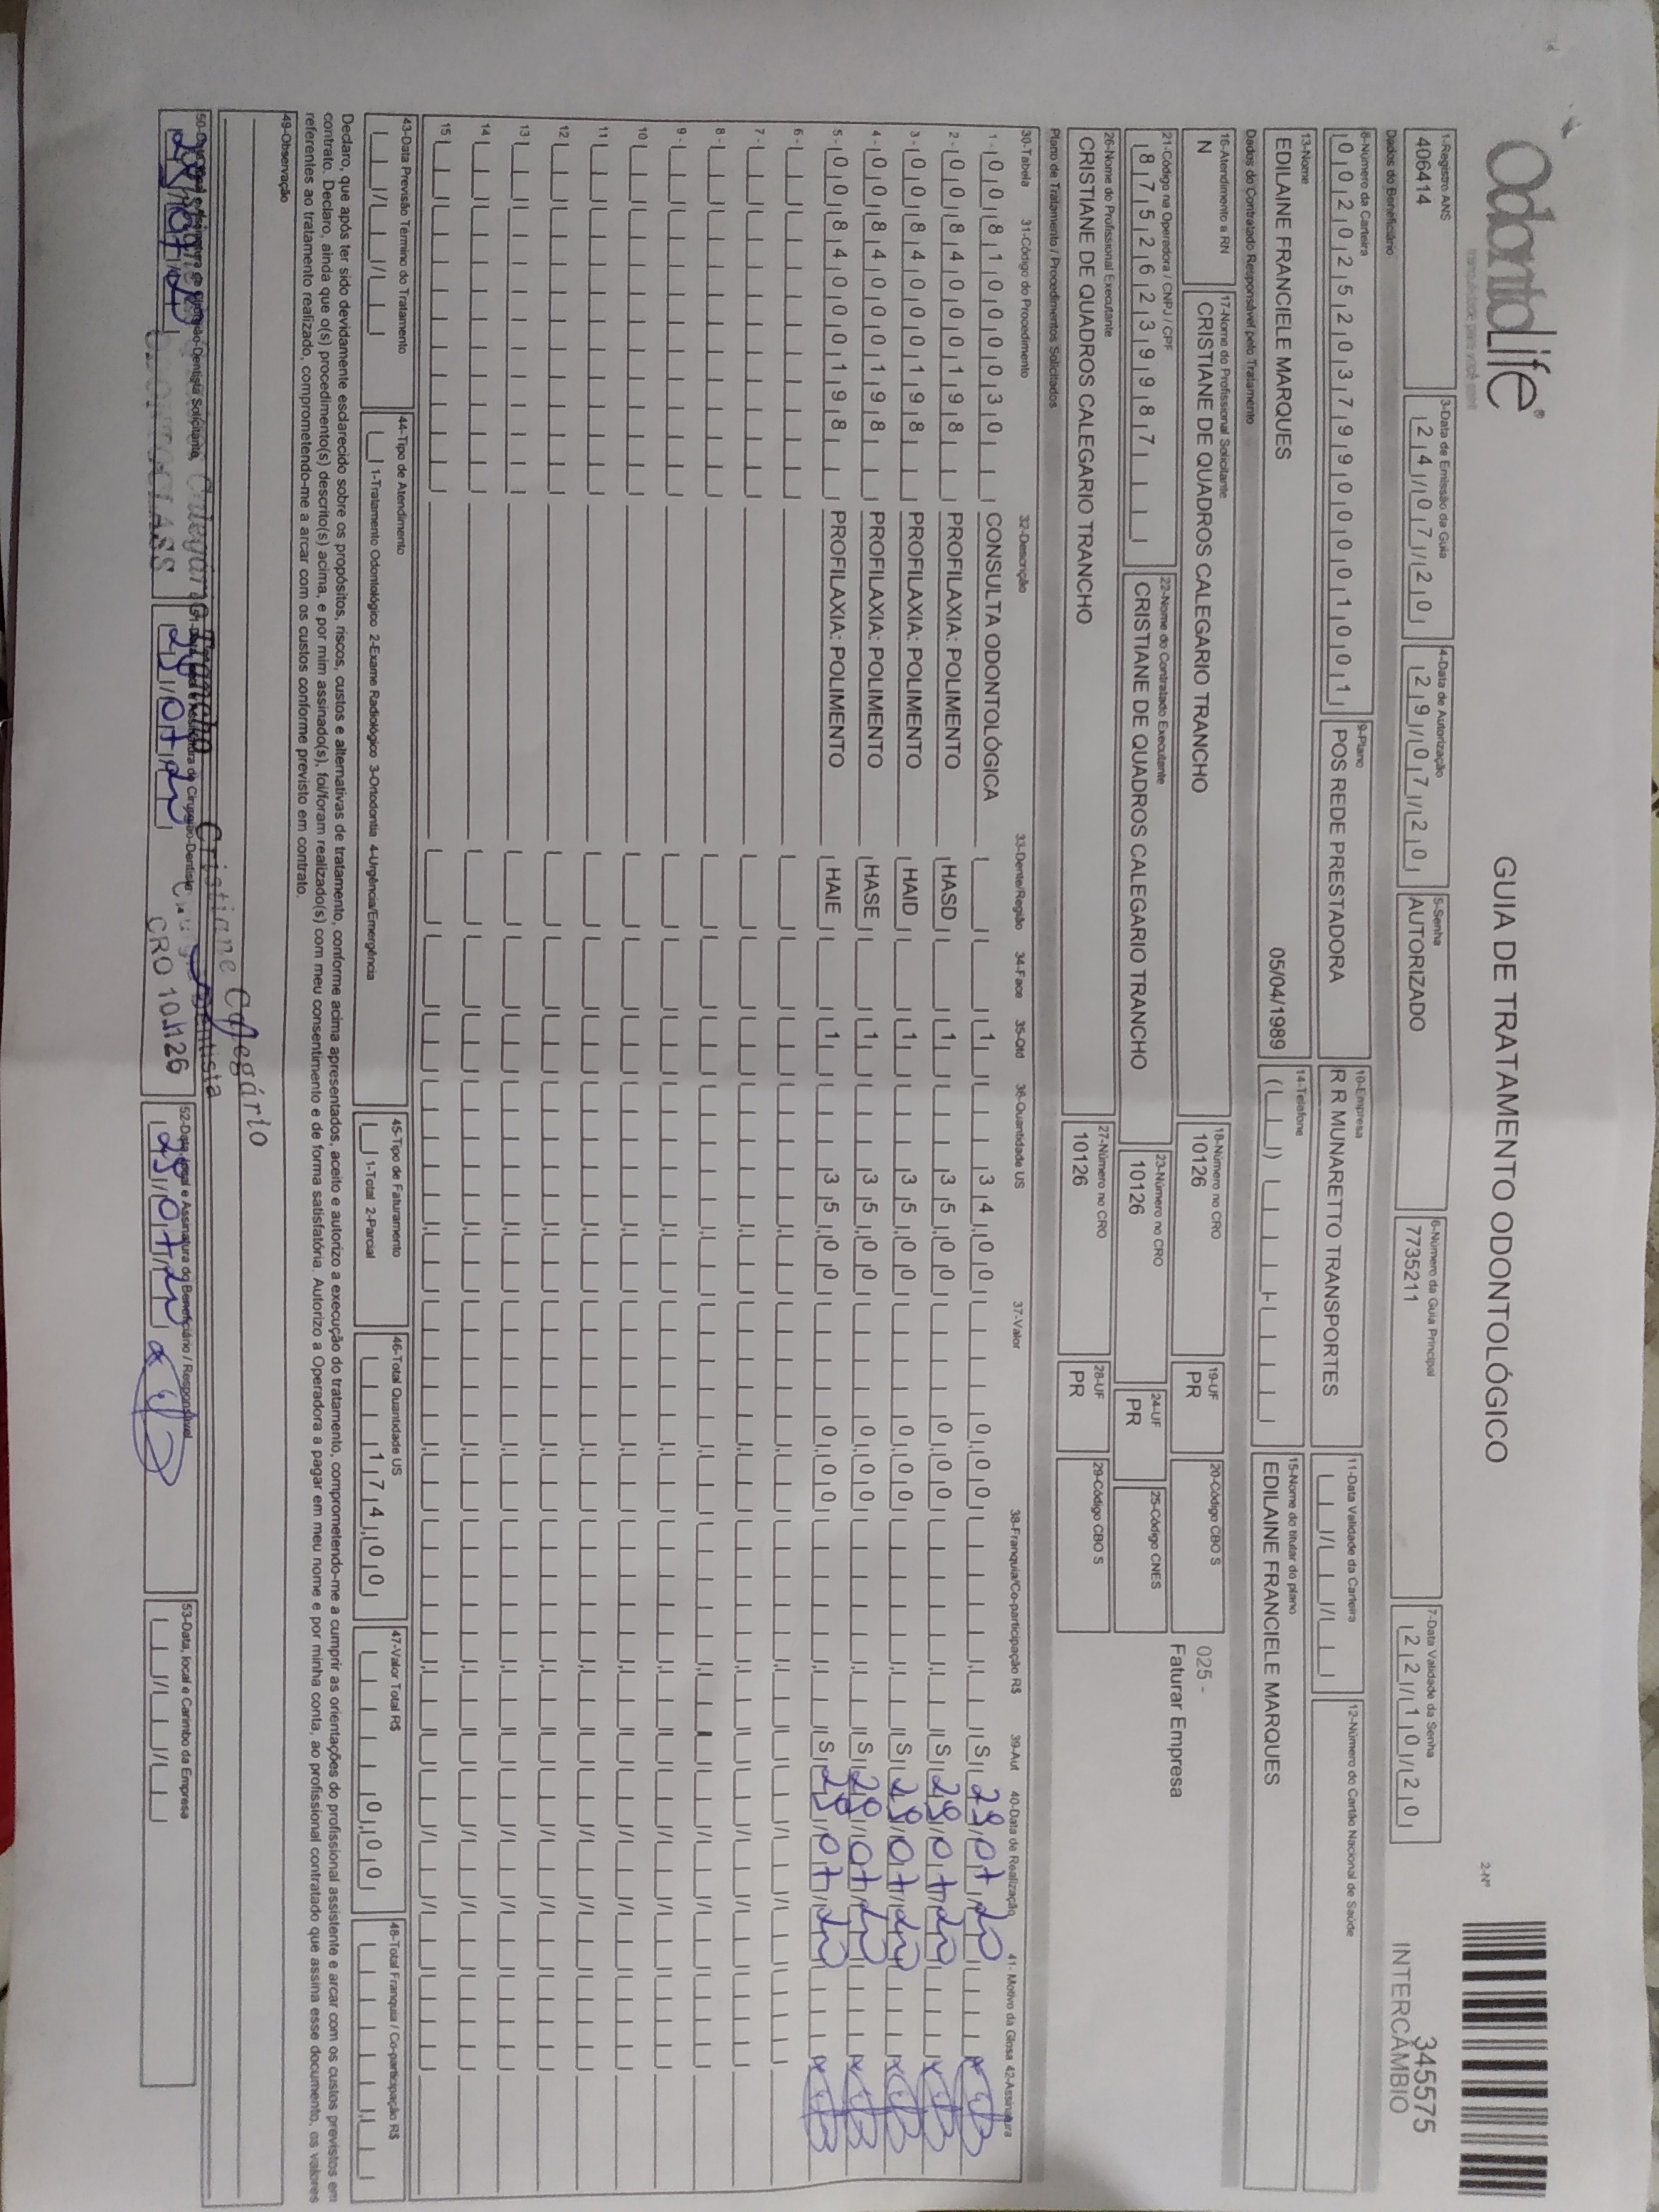 OdontoLife®
tranquilidade para você sorrir
GUIA DE TRATAMENTO ODONTOLÓGICO
2-Nº
345575
INTERCÂMBIO
1-Registro ANS
406414
3-Data de Emissão da Guia
24/07/20
4-Data de Autorização
29/07/20
5-Senha
AUTORIZADO
6-Número da Guia Principal
7735211
7-Data Validade da Senha
22/10/20
Dados do Beneficiário
8-Número da Carteira
00202520379900001001
9-Plano
POS REDE PRESTADORA
10-Empresa
R R MUNARETTO TRANSPORTES
11-Data Validade da Carteira
12-Número do Cartão Nacional de Saúde
13-Nome
EDILAINE FRANCIELE MARQUES
05/04/1989
14-Telefone
15-Nome do titular do plano
EDILAINE FRANCIELE MARQUES
Dados do Contratado Responsável pelo Tratamento
16-Atendimento a RN
N
17-Nome do Profissional Solicitante
CRISTIANE DE QUADROS CALEGARIO TRANCHO
18-Número no CRO
10126
19-UF
PR
20-Código CBO S
025 -
Faturar Empresa
21-Código na Operadora / CNPJ / CPF
87526239987
22-Nome do Contratado Executante
CRISTIANE DE QUADROS CALEGARIO TRANCHO
23-Número no CRO
10126
24-UF
PR
25-Código CNES
26-Nome do Profissional Executante
CRISTIANE DE QUADROS CALEGARIO TRANCHO
27-Número no CRO
10126
28-UF
PR
29-Código CBO S
Plano de Tratamento / Procedimentos Solicitados
30-Tabela 31-Código do Procedimento 32-Descrição 33-Dente/Região 34-Face 35-Qtd 36-Quantidade US 37-Valor 38-Franquia/Co-participação R$ 39-Aut 40-Data de Realização 41- Motivo da Glosa 42-Assinatura
1 - 00 81000030 CONSULTA ODONTOLÓGICA 1 34,00 0,00 S 29/07/20
2 - 00 84000198 PROFILAXIA: POLIMENTO HASD 1 35,00 0,00 S 29/07/20
3 - 00 84000198 PROFILAXIA: POLIMENTO HAID 1 35,00 0,00 S 29/07/20
4 - 00 84000198 PROFILAXIA: POLIMENTO HASE 1 35,00 0,00 S 29/07/20
5 - 00 84000198 PROFILAXIA: POLIMENTO HAIE 1 35,00 0,00 S 29/07/20
6 -
7 -
8 -
9 -
10
11
12
13
14
15
43-Data Previsão Término do Tratamento
44-Tipo de Atendimento
1-Tratamento Odontológico 2-Exame Radiológico 3-Ortodontia 4-Urgência/Emergência
45-Tipo de Faturamento
1-Total 2-Parcial
46-Total Quantidade US
174,00
47-Valor Total R$
0,00
48-Total Franquia / Co-participação R$
Declaro, que após ter sido devidamente esclarecido sobre os propósitos, riscos, custos e alternativas de tratamento, conforme acima apresentados, aceito e autorizo a execução do tratamento, comprometendo-me a cumprir as orientações do profissional assistente e arcar com os custos previstos em
contrato. Declaro, ainda que o(s) procedimento(s) descrito(s) acima, e por mim assinado(s), foi/foram realizado(s) com meu consentimento e de forma satisfatória. Autorizo a Operadora a pagar em meu nome e por minha conta, ao profissional contratado que assina esse documento, os valores
referentes ao tratamento realizado, comprometendo-me a arcar com os custos conforme previsto em contrato.
49-Observação
Cristiane Calegário
Calegário Trancho
Dentista
CRO 10.126
ODONTOCLASS
50-Data, local e Assinatura do Cirurgião-Dentista Solicitante
29/07/20
51-Data, local e Assinatura do Cirurgião-Dentista
29/07/20
52-Data, local e Assinatura do Beneficiário / Responsável
29/07/20
53-Data, local e Carimbo da Empresa